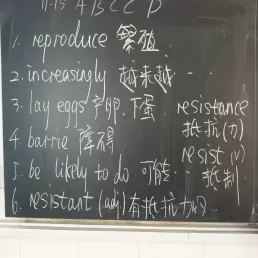 11-15 A B C C D
1. reproduce 繁殖
2. increasingly 越来越…
3. lay eggs 产卵.下蛋
4. barrie 障碍
5. be likely to do 可能…
6. resistant (adj) 有抵抗力的
resistance
抵抗(力)
resist (v)
抵制